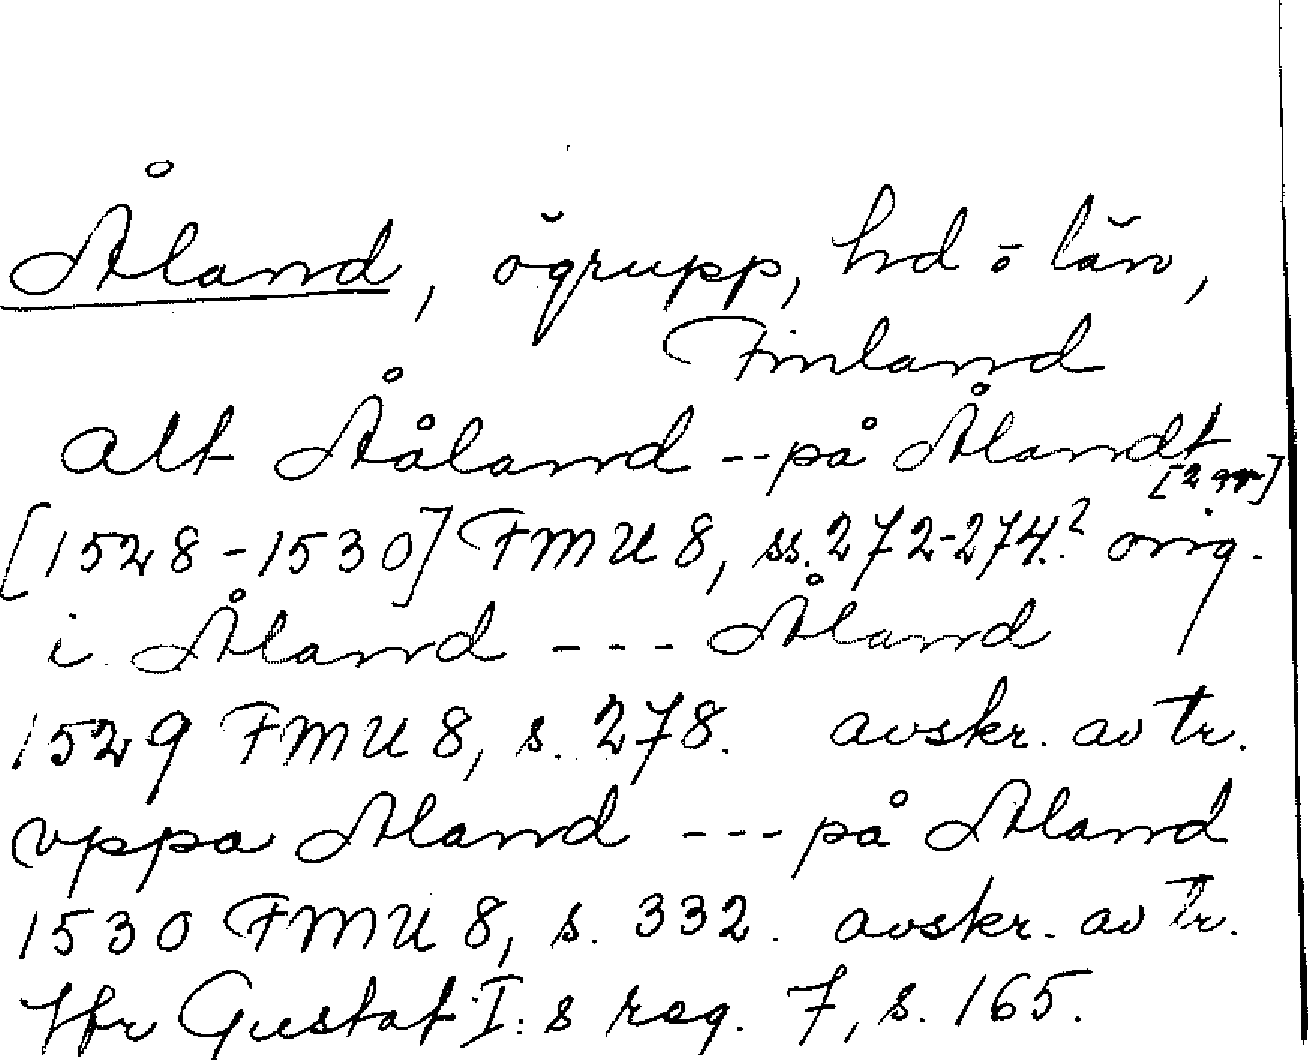 Åland, ögrupp, hd o län,
Finland
alt Ååland -- på Ålandt
[2 ggr]
[1528-1530] FMU 8, ss. 272-274. ? orig.
i Åland --- Åland
1529 FMU 8, s. 278. avskr. av tr.
vppa Aland --- på Aland
1530 FMU 8, s. 332. avskr. av tr.
Jfr Gustaf I:s reg. 7, s. 165.